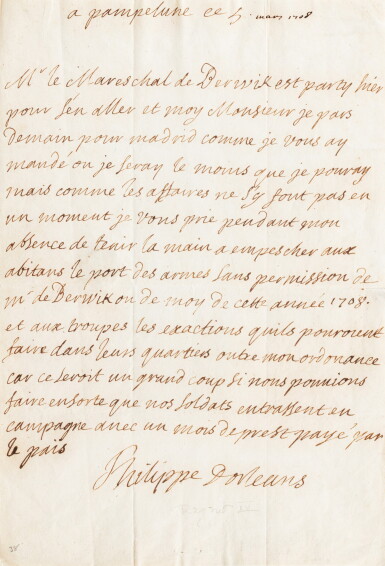 a pampelune ce 5. mars 1708
Mr. le Mareschal de Berwik est party hier
pour s'en aller et moy Monsieur je pars
demain pour madrid comme je vous ay
mandé ou je seray le moins que je pouray
mais comme les affaires ne s'y font pas en
un moment je vous prie pendant mon
absence de tenir la main a empescher aux
abitans le port des armes sans permission de
mr. de Berwik ou de moy de cette année 1708.
et aux troupes les exactions quils pouroient
faire dans leurs quartiers outre mon ordonance
car ce seroit un grand coup si nous pouuions
faire en sorte que nos soldats entrassent en
campagne auec un mois de prest payé par
le païs
Philippe Dorleans